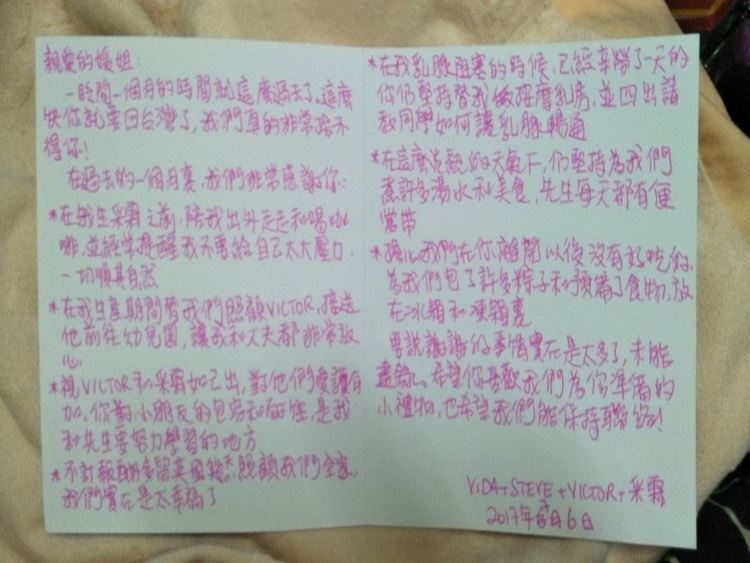 親愛的媛姐:
一眨間一個月的時間就這麼過去了。這麼
快你就要回台灣了,我們真的非常捨不
得你!
在過去的一個月裏,我們非常感謝你:
*在我生采霏之前,陪我出外走走和喝咖
啡,並經常提醒我不要給自己太大壓力,
一切順其自然
*在我生產期間替我們照顧VICTOR,接送
他前往幼兒園,讓我和丈夫都非常放
心
*視VICTOR和采霏如己出,對他們愛護有
加。你對小朋友的包容和耐性,是我
和先生要努力學習的地方
*不計報酬多留 照顧我們全家,
我們實在是太幸福了
*在我乳腺阻塞的時候,已經辛勞了一天的
你仍堅持替我做按摩乳房,並四出請
教同學如何讓乳腺暢通
*在這麼炎熱的天氣下,仍堅持為我們
煮許多湯水和美食,先生每天都有便
當帶
*擔心我們在你離開以後沒有好吃的,
為我們包了許多粽子和預備了食物,放
在冰箱和凍箱裏
要說謝謝的事情實在是太多了,未能
盡錄。希望你喜歡我們為你準備的
小禮物,也希望我們能保持聯絡!
VIDA+STEVE+VICTOR+采霏
2017年8月6日